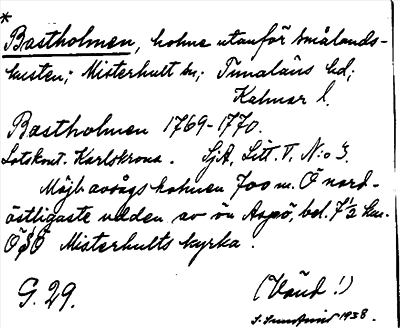 *
Bastholmen, holme utanför Smålands-
kusten; Misterhult sn; Tunaläns hd;
Kalmar l.
Bastholmen 1769-1770.
Lotskont. Karlskrona. SjA, Litt. T, N:o 3.
Möjl avsågs holmen 700 m. Ö nord-
östligaste udden av ön Aspö, bel. 7½ km.
ÖSÖ Misterhults kyrka.
G. 29. (Vänd!)
1938.